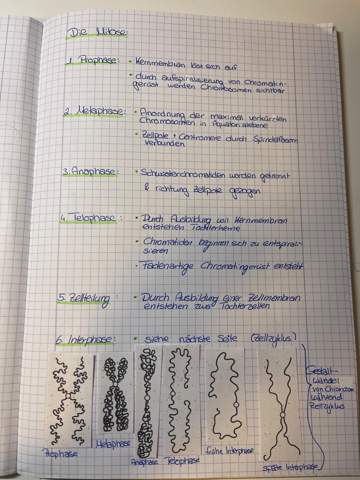 Die Mitose:
1. Prophase: • Kernmembran löst sich auf
• durch Aufspiralisierung von Chromatin-
gerüst werden Chromosomen sichtbar
2. Metaphase: • Anordnung der maximal verkürzten
Chromosomen in Äquatorialebene
• Zellpole + Centromere durch Spindelfasern
verbunden
3. Anaphase: • Schwesterchromatiden werden getrennt
& richtung Zellpole gezogen
4. Telophase: • Durch Ausbildung von Kernmembran
entstehen Tochterkerne
• Chromatiden beginnen sich zu entspirali-
sieren
• Fadenartige Chromatingerüst entsteht
5. Zellteilung: • Durch Ausbildung einer Zellmembran
entstehen zwei Tochterzellen
6. Interphase: • siehe nächste Seite (Zellzyklus)
Prophase
Metaphase
Anaphase
Telophase
frühe Interphase
späte Interphase
Gestalt-
wandel
von Chromosom
während
Zellzyklus